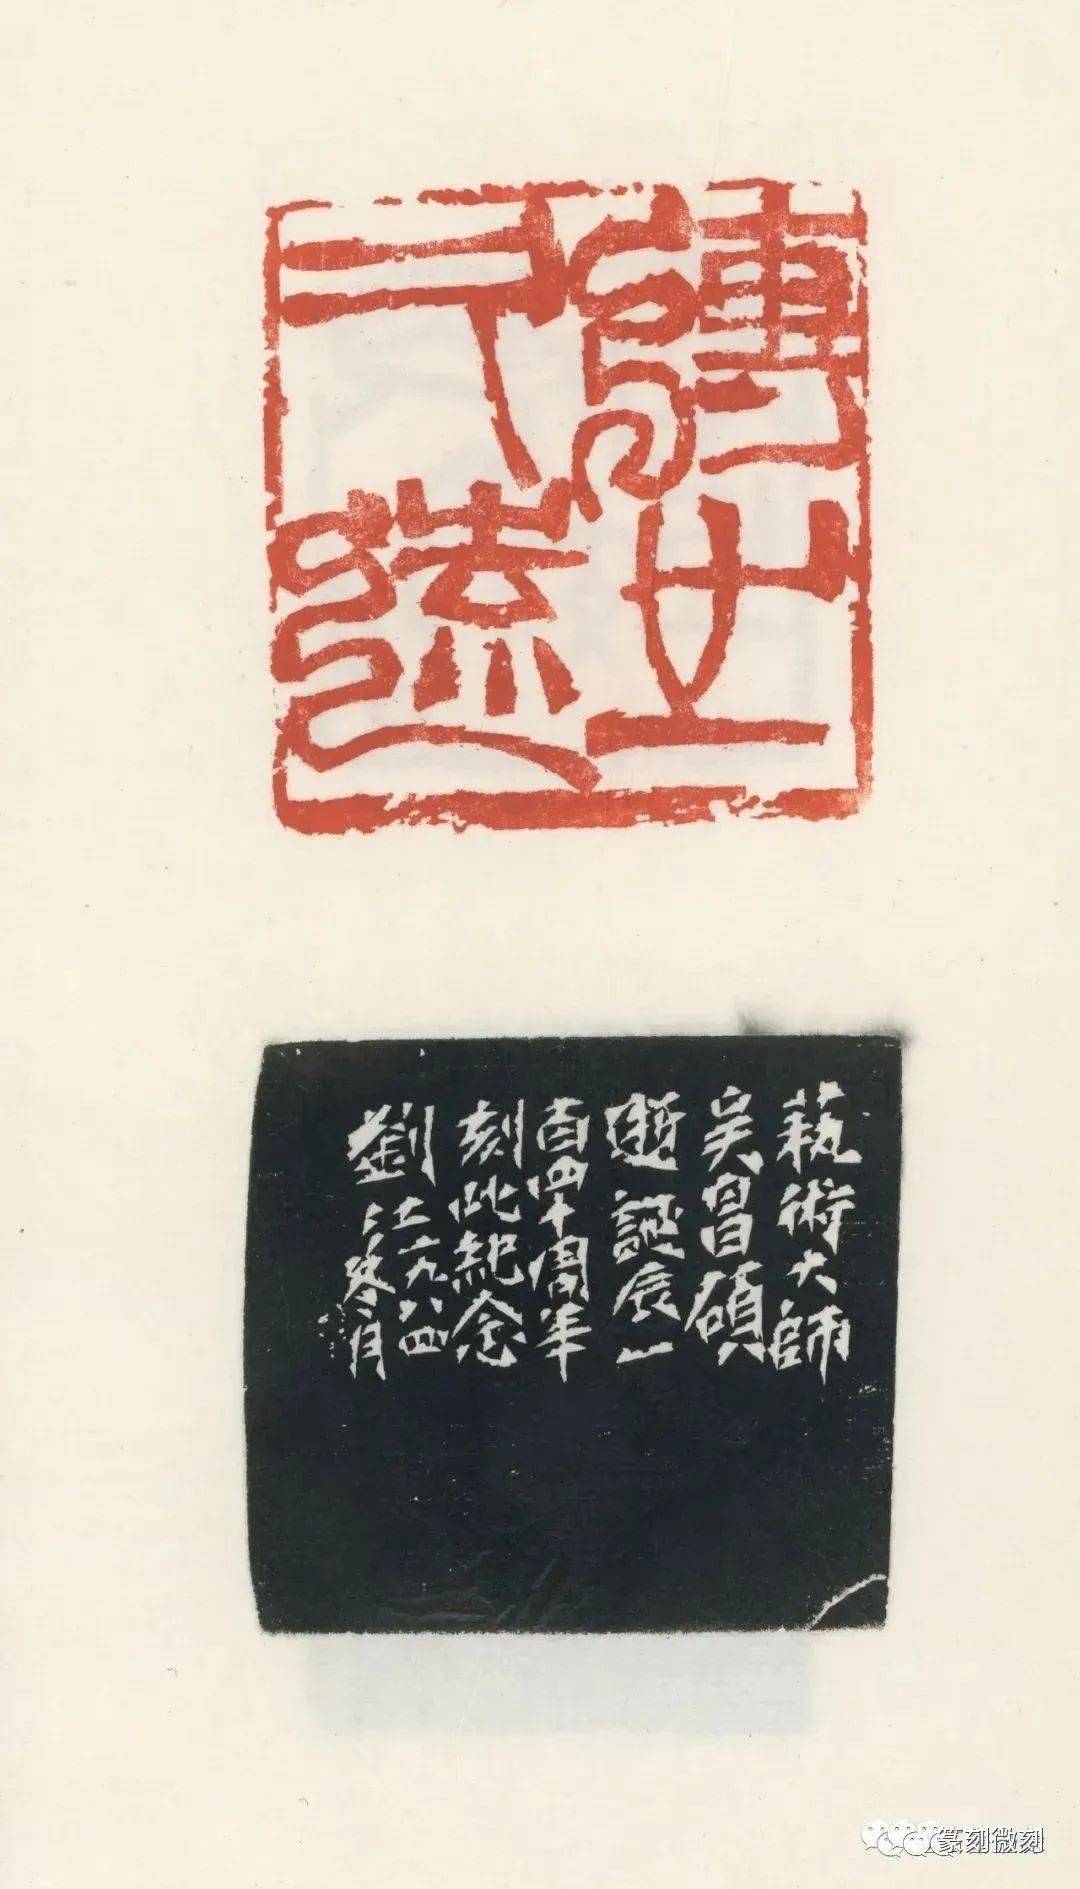 傳之
久遠
藝術大師
吴昌碩
誕辰一
百四十周年
刻此紀念
劉江一九八四
冬月
篆刻微刻